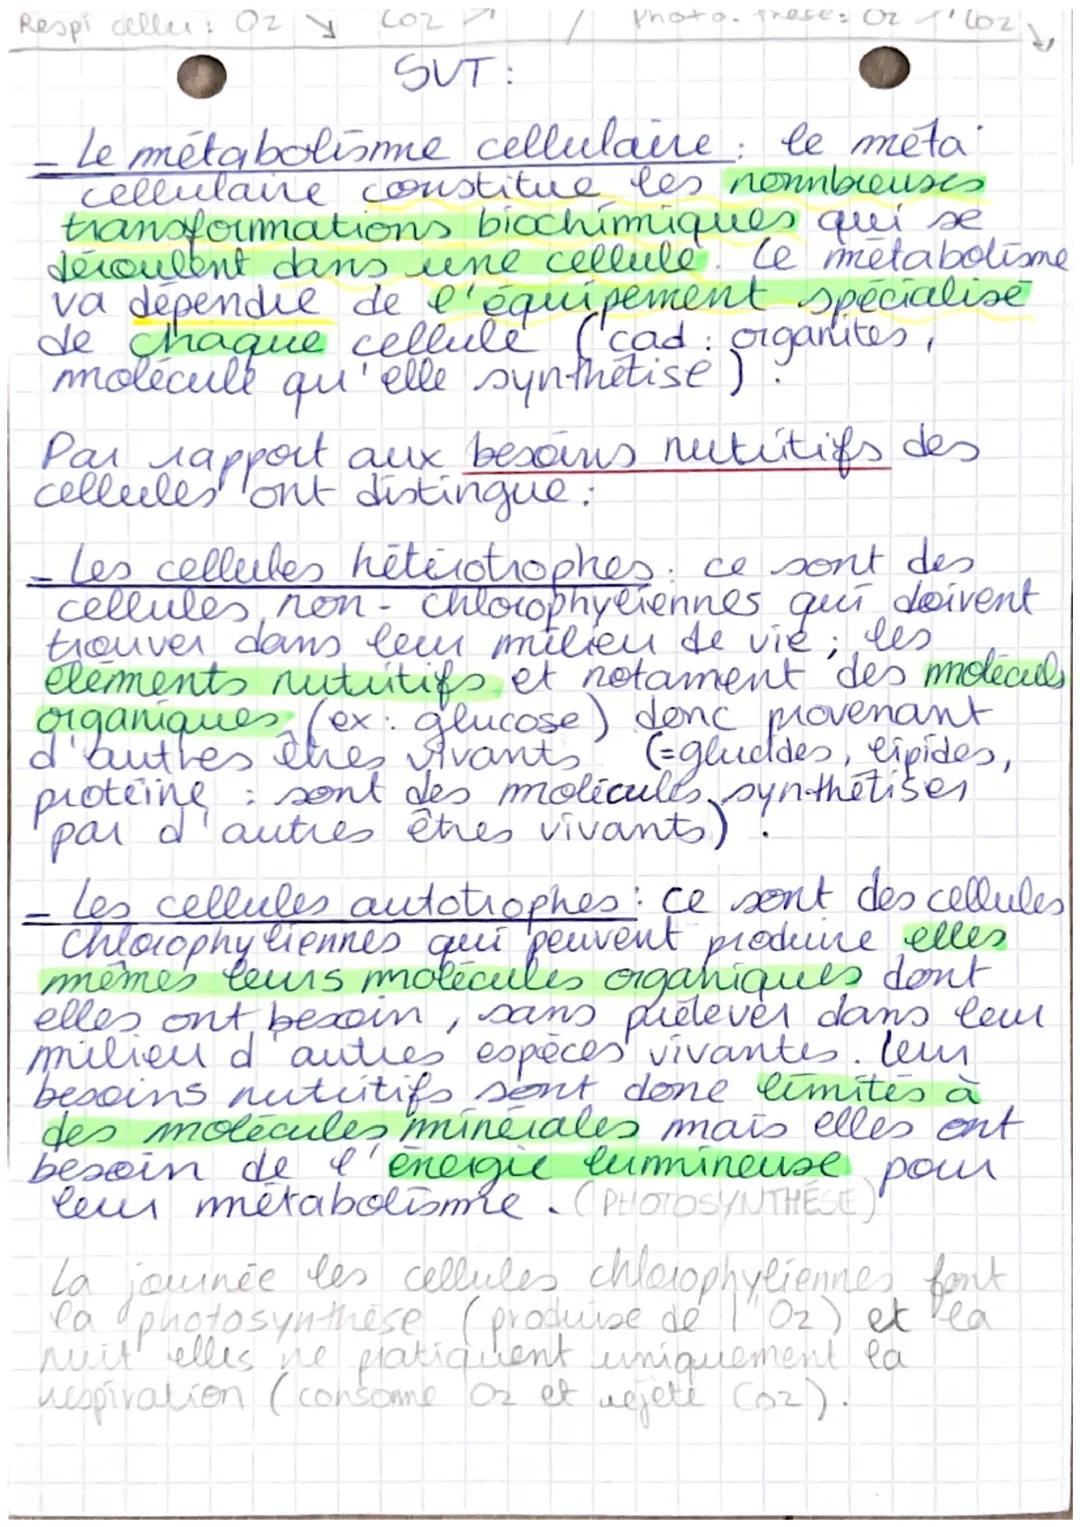 Respi cellu : O2 ↘ CO2 ↗ / Photo. thèse : O2 ↗ CO2 ↘
SVT :
- Le métabolisme cellulaire : le méta
cellulaire constitue les nombreuses
transformations biochimiques qui se
déroulent dans une cellule. Le métabolisme
va dépendre de l'équipement spécialisé
de chaque cellule (cad : organites,
molécule qu'elle synthétise).
Par rapport aux besoins nutritifs des
cellules ont distingue :
- Les cellules hétérotrophes : ce sont des
cellules non-chlorophyliennes qui doivent
trouver dans leur milieu de vie ; les
éléments nutritifs et notament des molécules
organiques (ex : glucose) donc provenant
d'autres êtres vivants (=glucides, lipides,
protéine : sont des molécules synthétisés
par d'autres êtres vivants).
- Les cellules autotrophes : ce sont des cellules
chlorophyliennes qui peuvent produire elles
mêmes leurs molécules organiques dont
elles ont besoin, sans prélever dans leur
milieu d'autres espèces vivantes. Leur
besoins nutritifs sont donc limités à
des molécules minérales mais elles ont
besoin de l'énergie lumineuse pour
leur métabolisme. (PHOTOSYNTHÉSE)
La journée les cellules chlorophyliennes font
la photosynthèse (produise de l'O2) et la
nuit elles ne pratiquent uniquement la
respiration (consomme O2 et rejete CO2).